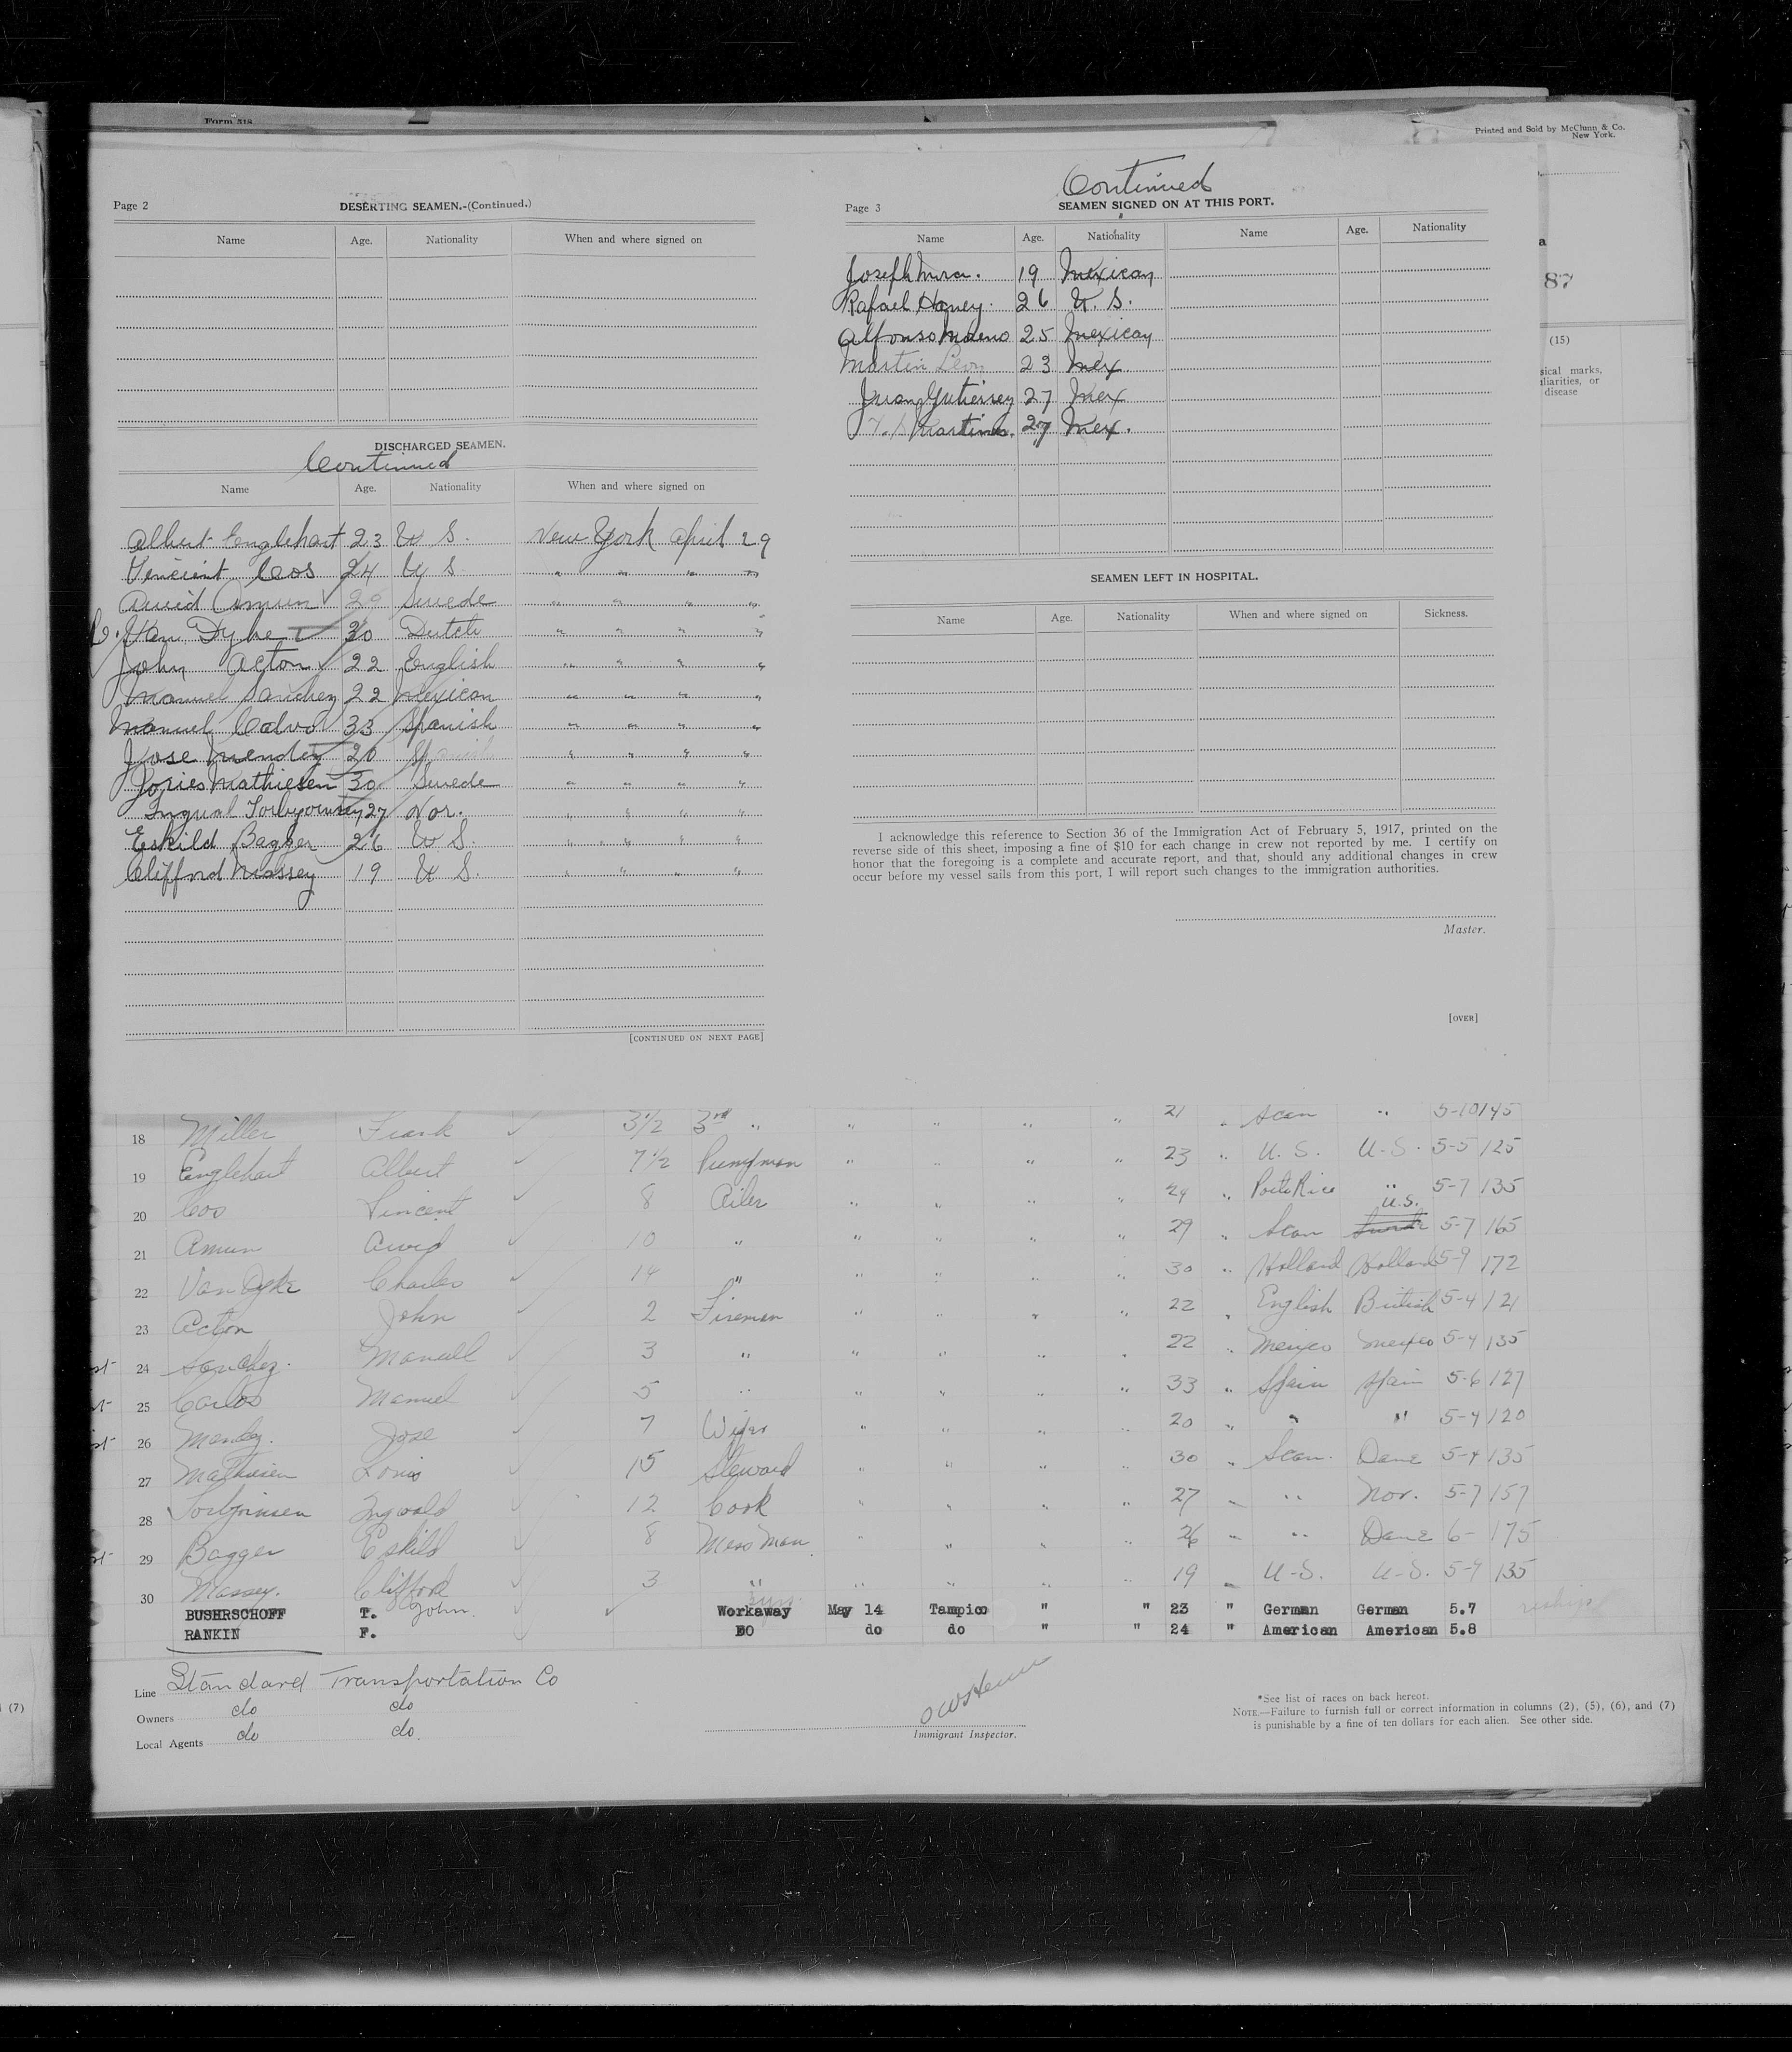 Form 518
Printed and Sold by McClunn & Co.
New York.
Page 2
DESERTING SEAMEN.-(Continued.)
Name Age. Nationality When and where signed on
DISCHARGED SEAMEN.
Continued
Name Age. Nationality When and where signed on
Albert Englehart 23 U S. New York April 29
Vincient Cos 24 U S " " " "
Arvid Amun 20 Swede " " " "
C. Van Dyke 30 Dutch " " " "
John Acton 22 English " " " "
Manuel Sanchez 22 Mexican " " " "
Manuel Calvo 33 Spanish " " " "
Jose Mendez 20 Spanish " " " "
Mathiesen 30 Swede " " " "
27 Nor. " " " "
Eskild Bagger 26 U S. " " " "
Clifford Massey 19 U S. " " " "
[CONTINUED ON NEXT PAGE]
Continued
Page 3
SEAMEN SIGNED ON AT THIS PORT.
Name Age. Nationality Name Age. Nationality
Joseph 19 Mexican
Rafael Haney. 26 U. S.
Alfonso 25 Mexican
Martin Leon 23 Mex
Juan Gutierrez 27 Mex
27 Mex.
SEAMEN LEFT IN HOSPITAL.
Name Age. Nationality When and where signed on Sickness.
I acknowledge this reference to Section 36 of the Immigration Act of February 5, 1917, printed on the
reverse side of this sheet, imposing a fine of $10 for each change in crew not reported by me. I certify on
honor that the foregoing is a complete and accurate report, and that, should any additional changes in crew
occur before my vessel sails from this port, I will report such changes to the immigration authorities.
Master.
[OVER]
a
87
(15)
sical marks,
uliarities, or
disease
18 Miller Frank 3 1/2 3rd " " " " " 21 " Scan " 5-10 145
19 Englehart Albert 7 1/2 Pumpman " " " " 23 " U. S. U. S. 5-5 125
20 Cos Vincent 8 Oiler " " " " 24 " Porto Rico " 5-7 135
U.S.
21 Amun Arvid 10 " " " " " 29 " Scan 5-7 165
22 Van Dyke Charles 14 " " " " " 30 " Holland Holland 5-9 172
23 Acton John 2 Fireman " " " " 22 " English British 5-4 121
24 Sanchez. Manuell 3 " " " " " 22 " Mexico Mexico 5-4 135
25 Carlos Manuel 5 " " " " " 33 " Spain Spain 5-6 127
26 Mendez. Jose 7 Wiper " " " " 20 " " " 5-4 120
27 Mathiesen Louis 15 Steward " " " " 30 " Scan. Dane 5-4 135
28 Torbjornsen Ingvald 12 Cook " " " " 27 " " Nor. 5-7 157
29 Bagger Eskild 8 Mess Man " " " " 26 " " Dane 6- 175
30 Massey. Clifford 3 " " " " " 19 " U-S. U-S. 5-7 135
BUSHRSCHOFF T. John. Workaway May 14 Tampico " " 23 " German German 5.7
RANKIN F. DO do do " " 24 " American American 5.8
Line Standard Transportation Co
Owners do do
Local Agents do do.
Immigrant Inspector.
*See list of races on back hereof.
NOTE.—Failure to furnish full or correct information in columns (2), (5), (6), and (7)
is punishable by a fine of ten dollars for each alien. See other side.
(7)